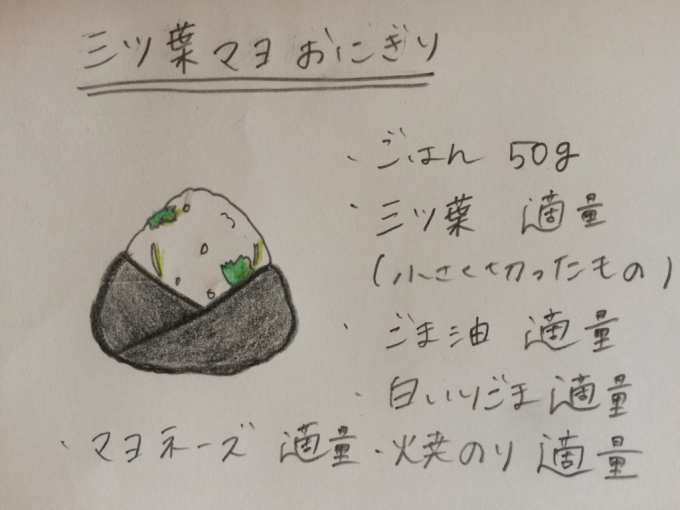 三ツ葉マヨおにぎり
・ごはん 50g
・三ツ葉 適量
(小さく切ったもの)
・ごま油 適量
・白いりごま適量
・マヨネーズ 適量・焼のり 適量